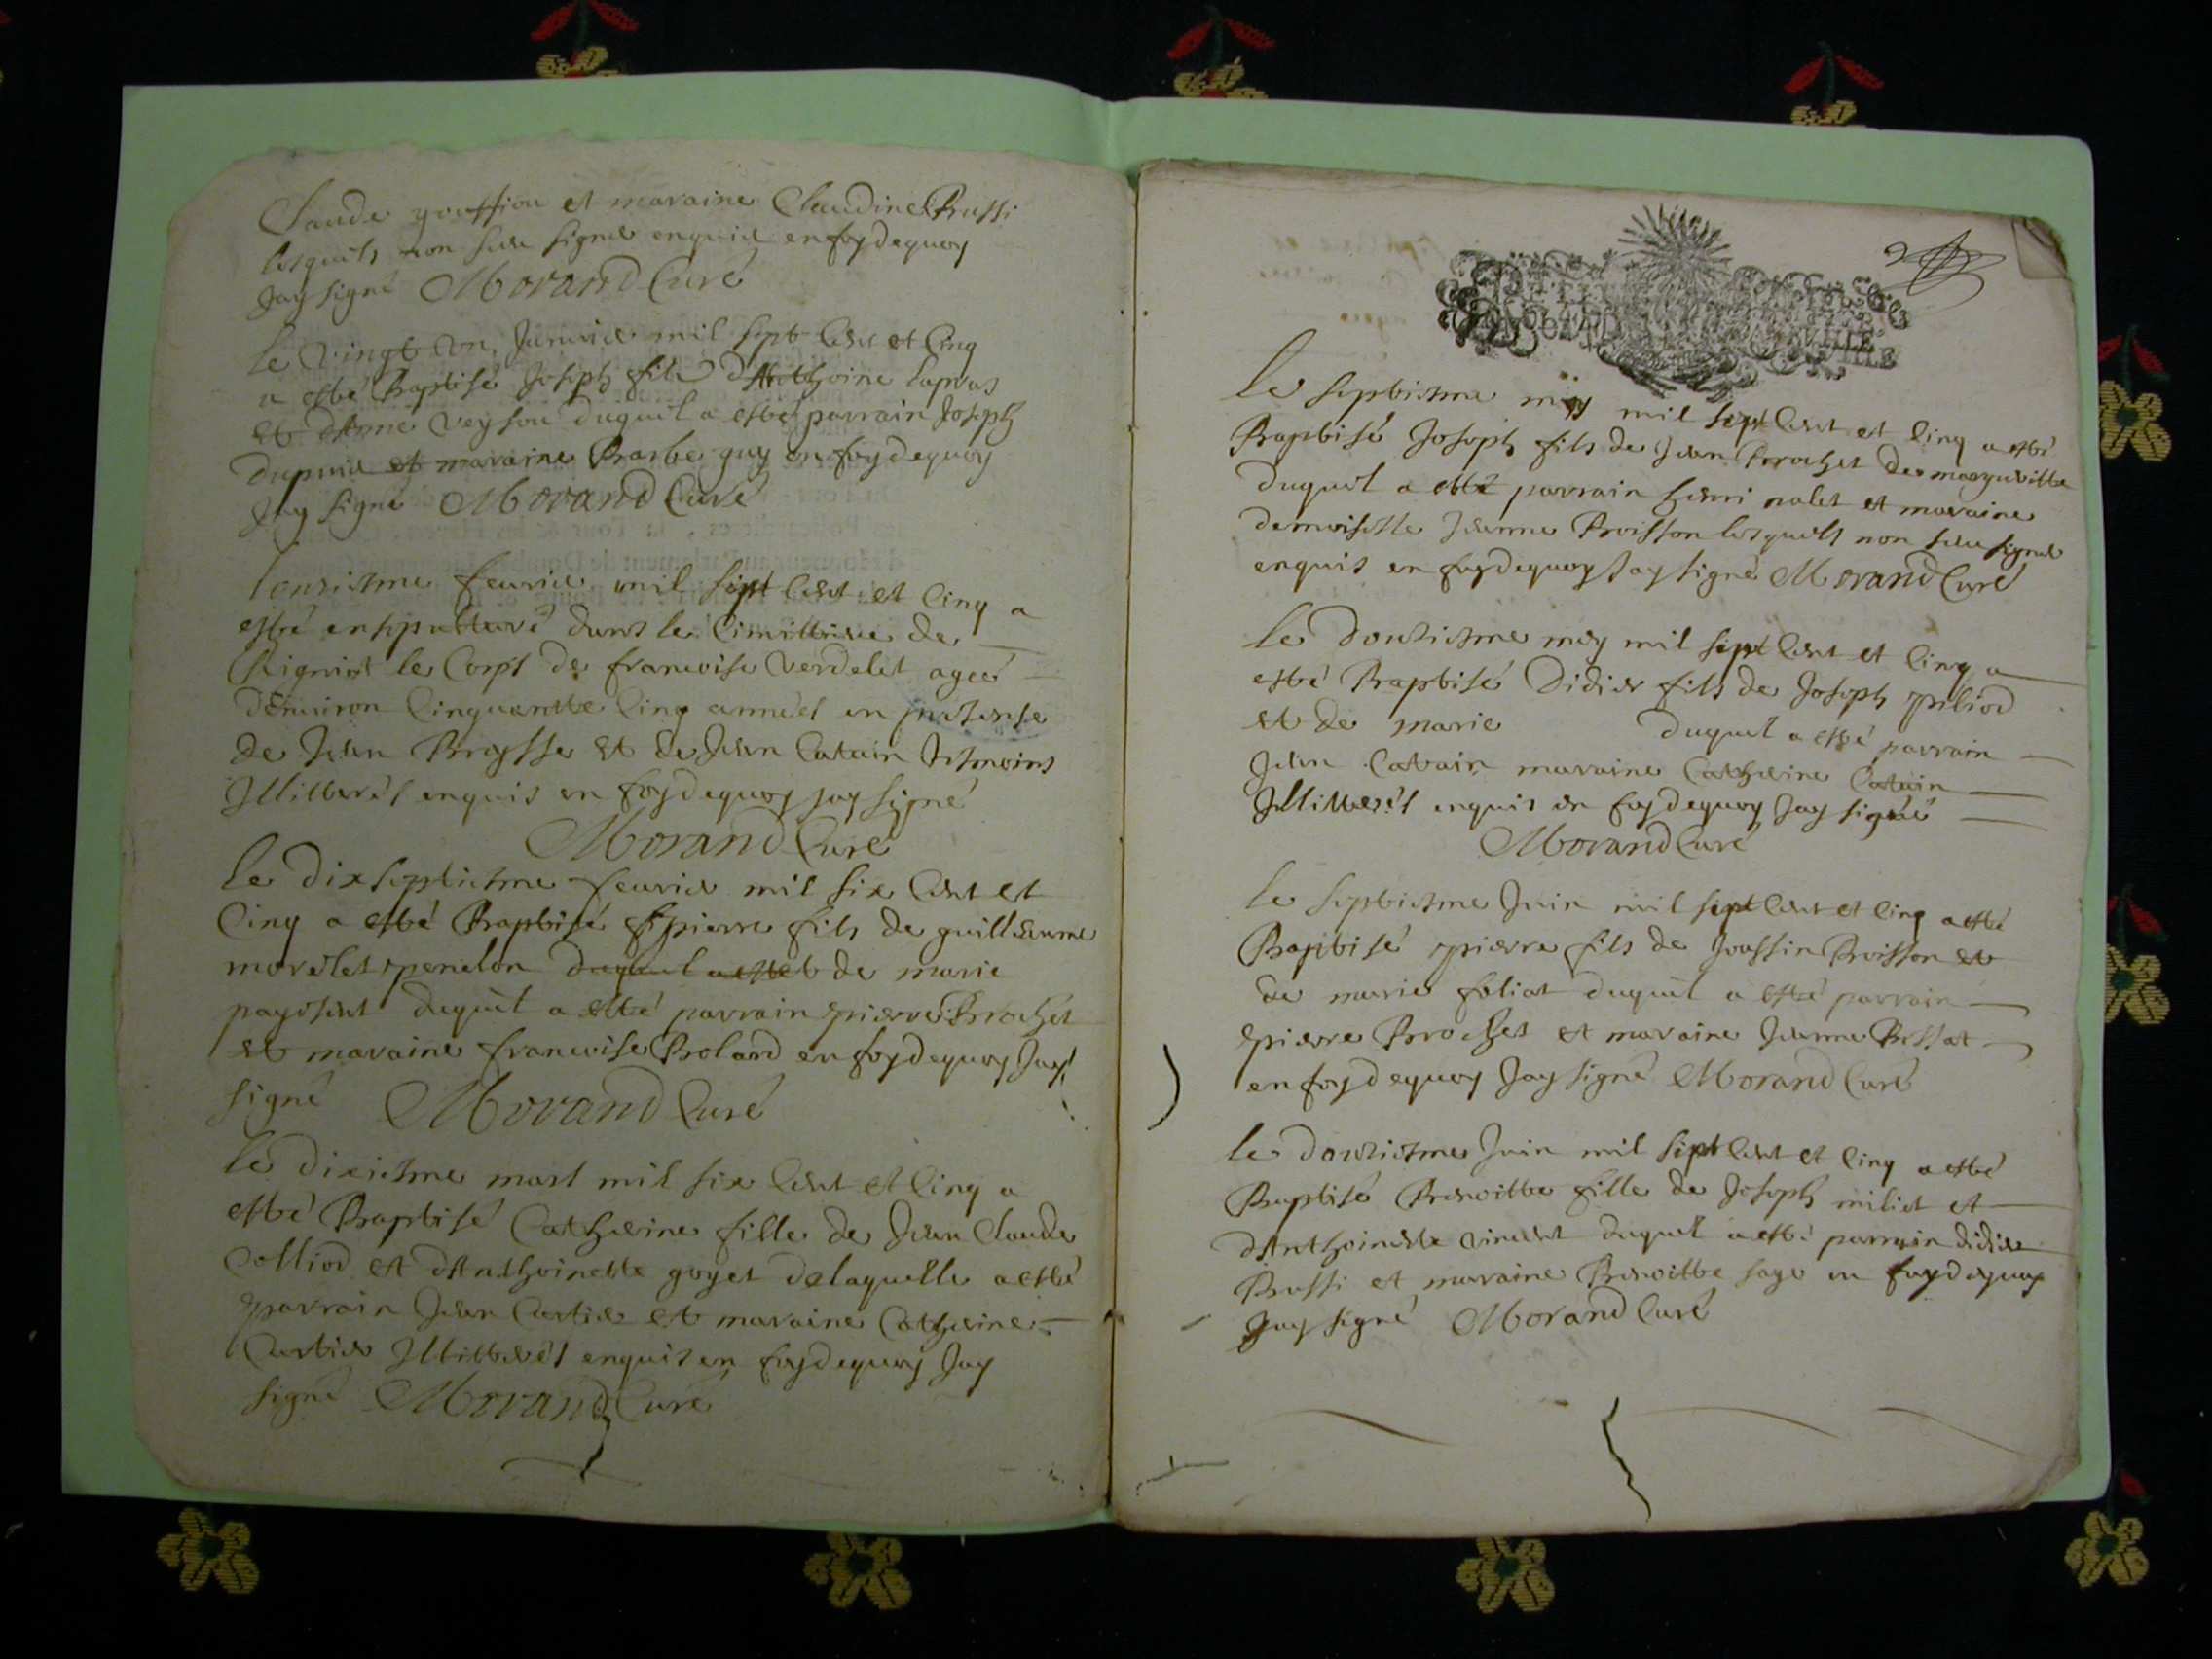 Claude goussion et maraine Claudine Bussi
lesquels non sceu signer enquis en foy de quoy
Jay signé Morand Curé
Le vingt un Janvier mil sept cent et cinq
a esté Baptisé Joseph fils dAnthoine lapras
et dAnne veyson duquel a esté parrain Joseph
dupuis et maraine Barbe guy en foy de quoy
Jay signé Morand Curé
Lonziesme feurier mil sept cent et cinq a
esté ensepulturé dans le cimittiere de
le Corps de francoise verdelet agee
denuiron cinquantte cinq années en presense
de Jean Braysse et de Jean Catain tesmoins
Illitterés enquis en foy de quoy jay signé
Morand Curé
Le dixseptiesme feurier mil six cent et
cinq a esté Baptisé pierre fils de guilleaume
morelet penelon duquel a esté et de marie
payosent duquel a esté parrain pierre Brochet
et maraine francoise Bolard en foy de quoy Jay
signé Morand Curé
Le dixiesme mars mil six cent et cinq a
esté Baptisé Catherine fille de Jean Claude
Colliod et dAnthoinette goyet delaquelle a esté
parrain Jean Cartier et maraine Catherine
Cartier Illitterés enquis en foy de quoy Jay
signé Morand Curé
Le septiesme may mil sept cent et cinq a esté
Baptisé Joseph fils de Jean Brochet de margueritte
duquel a esté parrain henri nalet et maraine
demoiselle Jeanne Broisson lesquells non sceu signer
enquis en foy de quoy Jay signé Morand Curé
Le douziesme may mil sept cent et cinq a
esté Baptisé Didier fils de Joseph piliod
et de marie duquel a esté parrain
Jean Catain maraine Catherine Catain
Illitterés enquis en foy de quoy Jay signé
Morand Curé
Le septiesme Juin mil sept cent et cinq a esté
Baptisé pierre fils de Joussin Broisson et
de marie foliat duquel a esté parrain
pierre Brochet et maraine Jeanne Bessat
en foy de quoy Jay signé Morand Curé
Le douziesme Juin mil sept cent et cinq a esté
Baptisé Benoitte fille de Joseph miliet et
dAnthoinette vincent duquel a esté parrain didier
Bussi et maraine Benoitte sage en foy de quoy
Jay signé Morand Curé